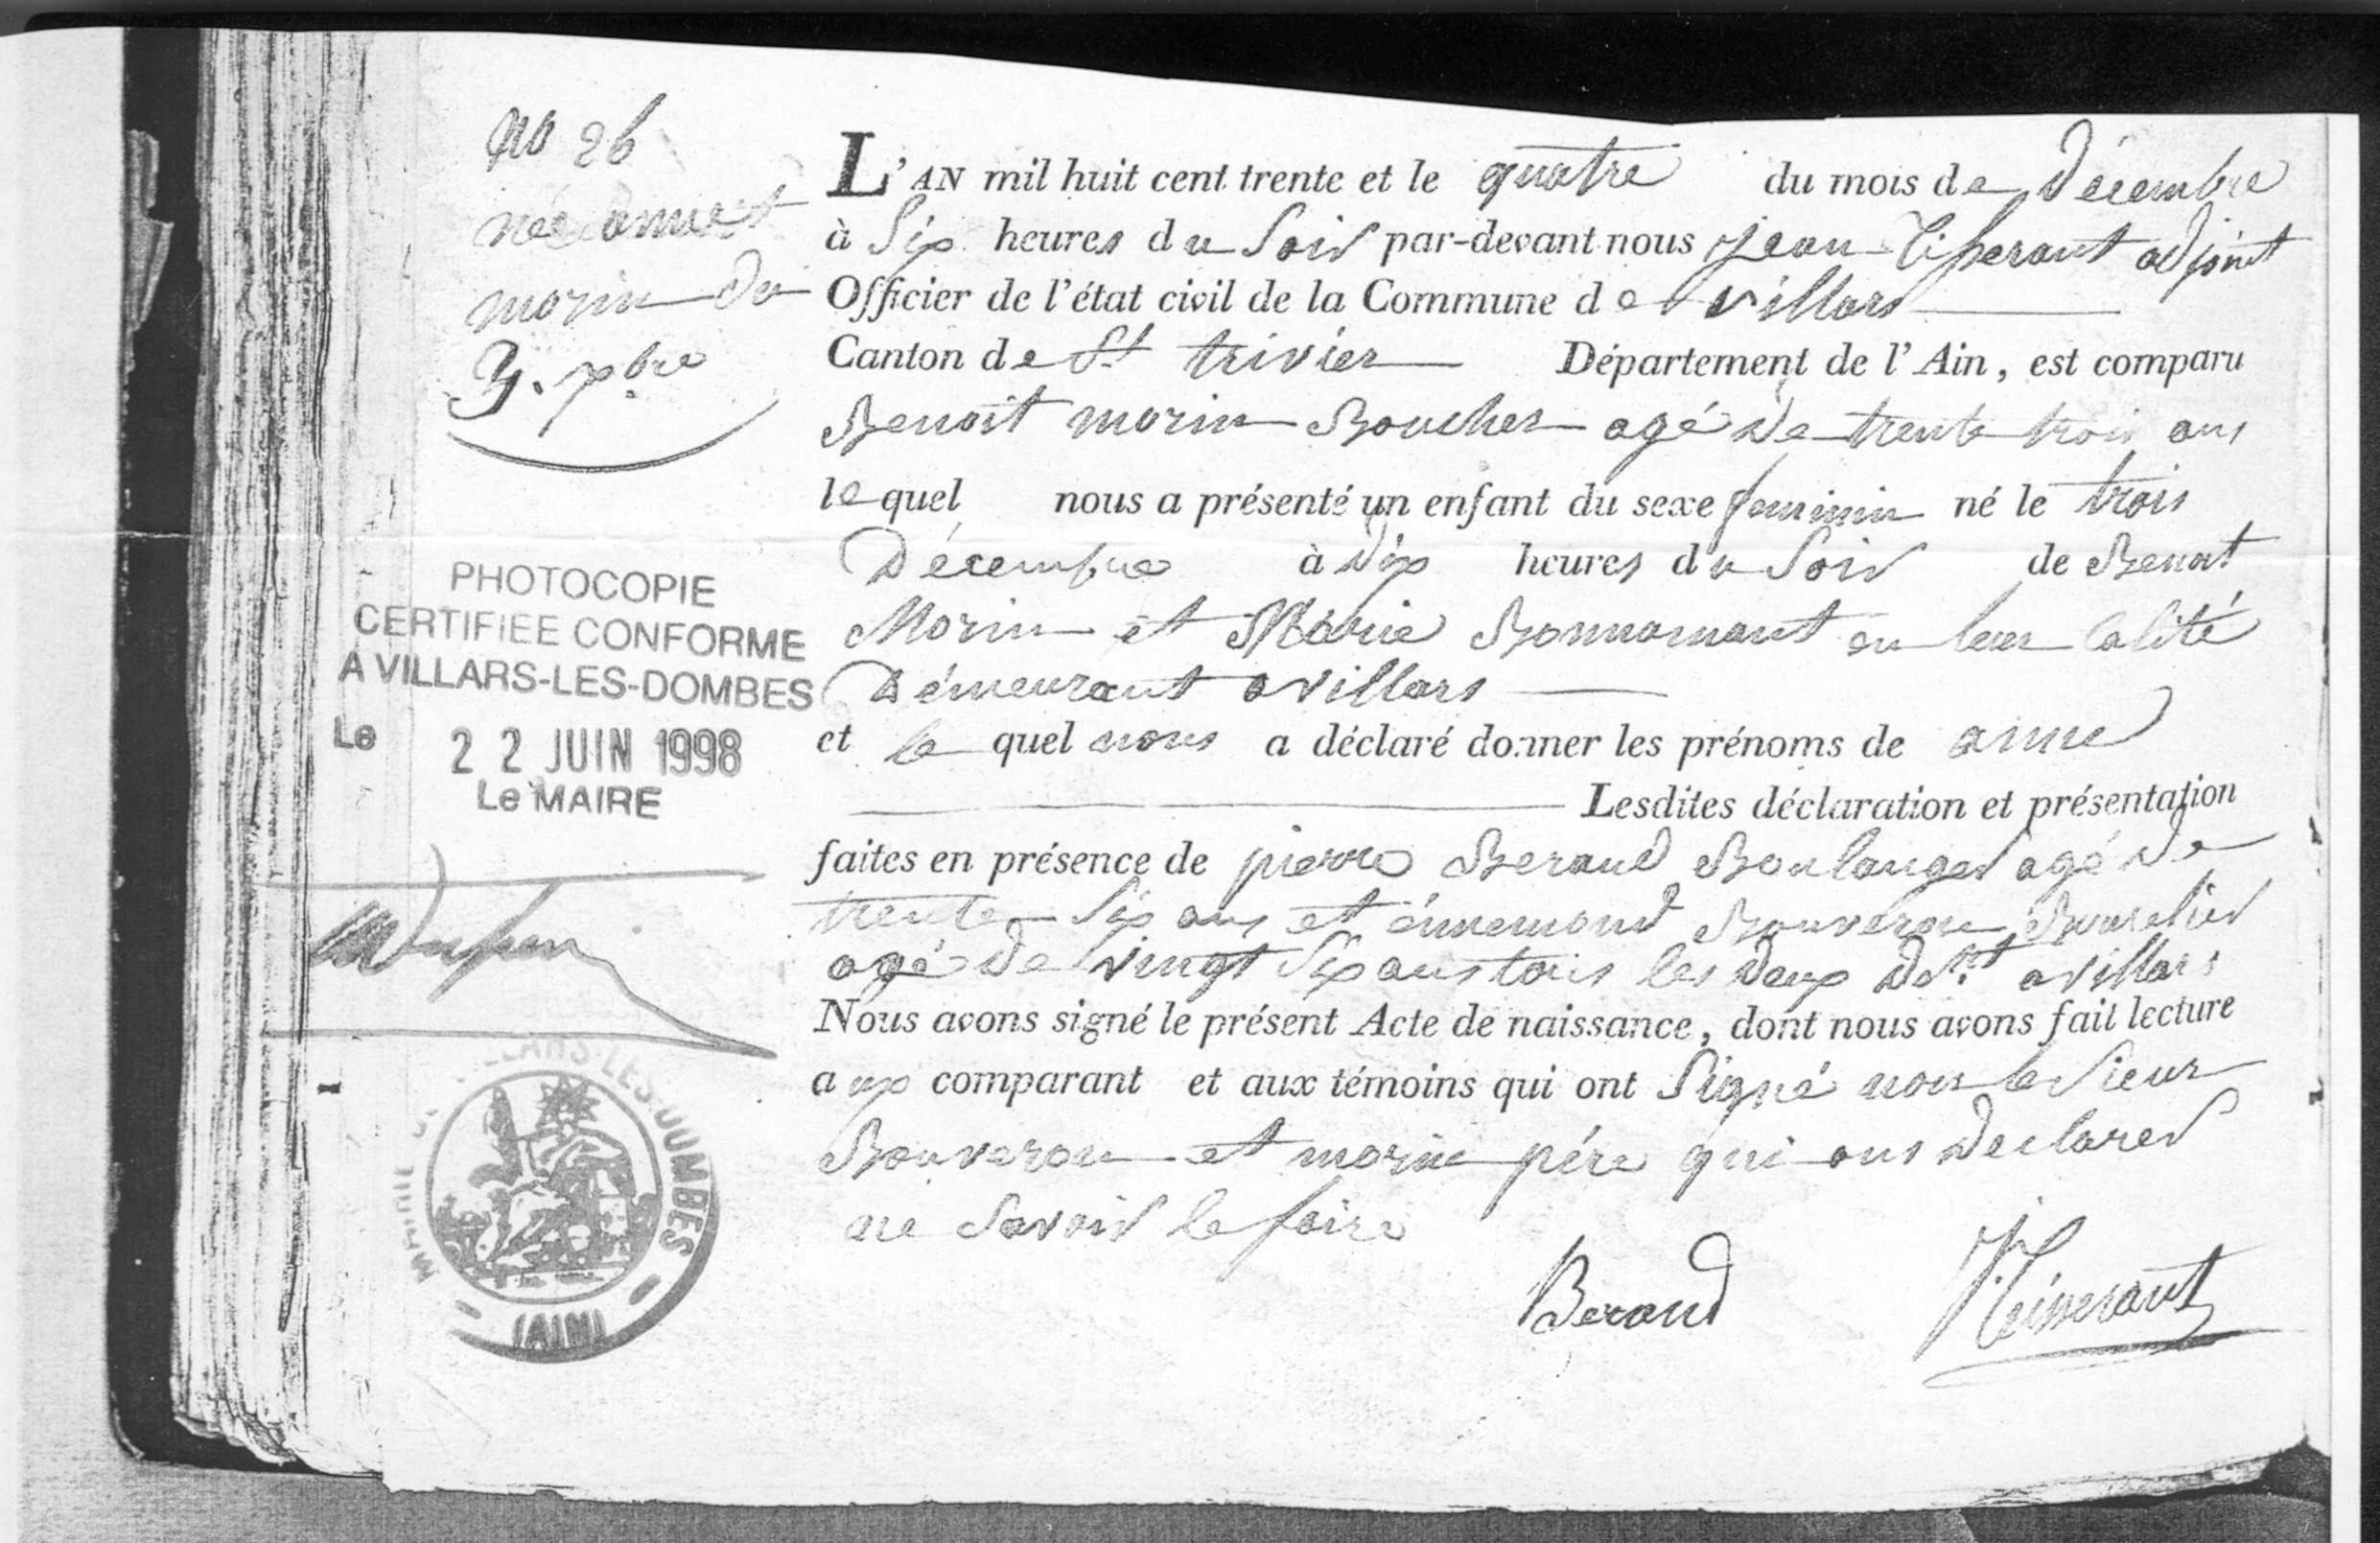 no 26
née anne
morin du
3. xbre
L'AN mil huit cent trente et le quatre du mois de Décembre
à Six heures du Soir par-devant nous jean Tisserant adjoint
Officier de l'état civil de la Commune de villars
Canton de St trivier Département de l'Ain, est comparu
Benoit morin Boucher agé de trente trois ans
lequel nous a présenté un enfant du sexe feminin né le trois
Décembre à dix heures du Soir de Benoit
Morin et Marie Bonnamant en leur calité
Démeurant a villars
et le quel nous a déclaré donner les prénoms de anne
Lesdites déclaration et présentation
faites en présence de pierre Beraud Boulanger agé de
trente Six ans et énnemond Bouveron Bourelier
agé de vingt Six ans tous les deux det a villars
Nous avons signé le présent Acte de naissance, dont nous avons fait lecture
aux comparant et aux témoins qui ont Signé non le Sieur
Bouveron et morin pére qui ons declarer
ne Savoir le faire
Beraud
J. Teisserant
PHOTOCOPIE
CERTIFIEE CONFORME
A VILLARS-LES-DOMBES
Le 22 JUIN 1998
Le MAIRE
MAIRIE LARS-LES-DOMBES
(AIN)